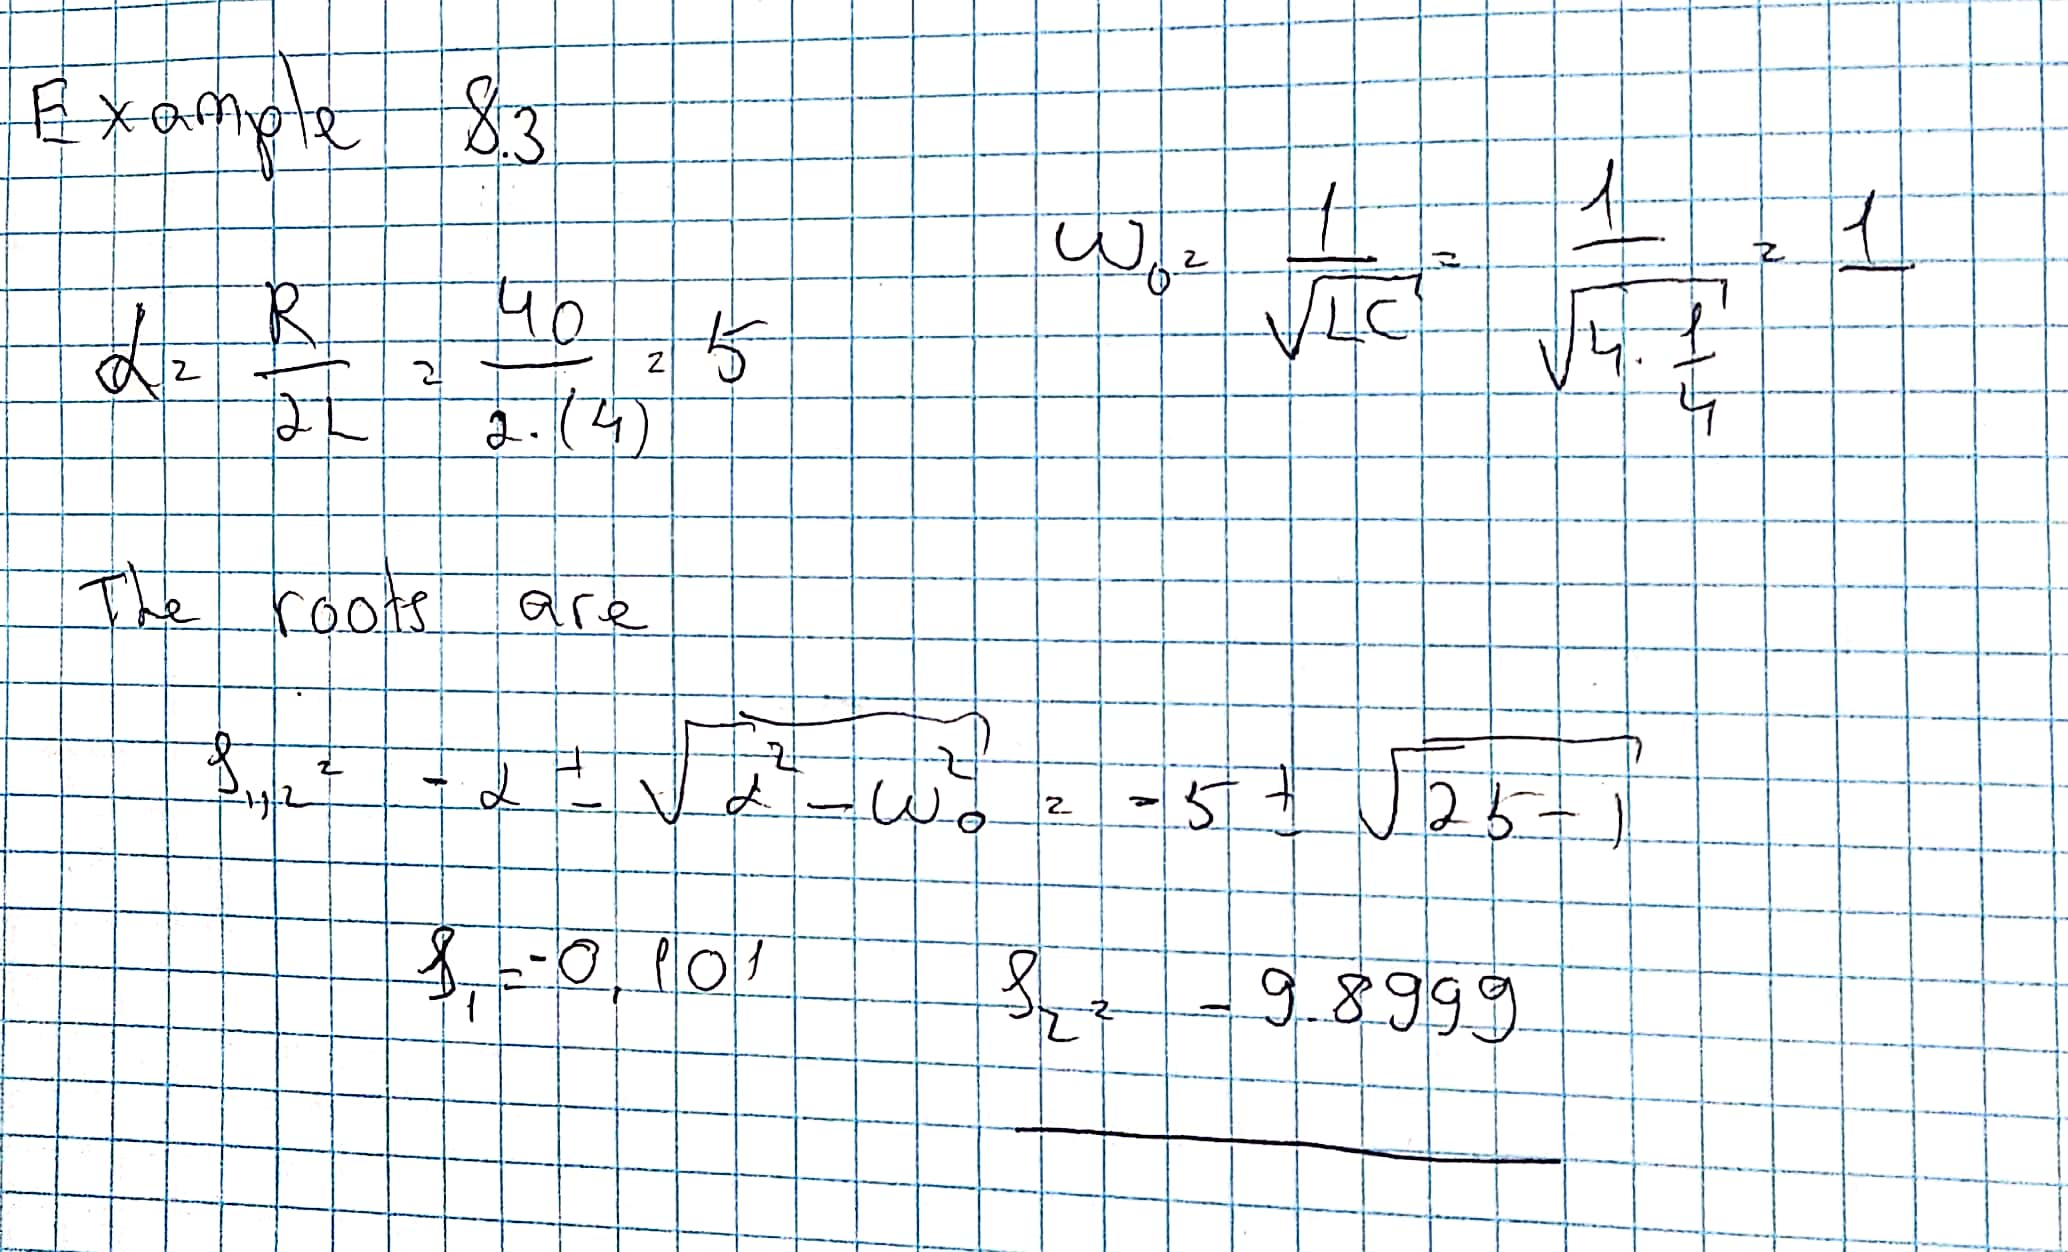 Example 8.3
α = R / 2L = 40 / 2.(4) = 5
ω₀ = 1 / √LC = 1 / √(4 · 1/4) = 1
The roots are
S₁,₂ = -α ± √(α² - ω₀²) = -5 ± √(25-1)
S₁ = -0,101 S₂ = -9.8999